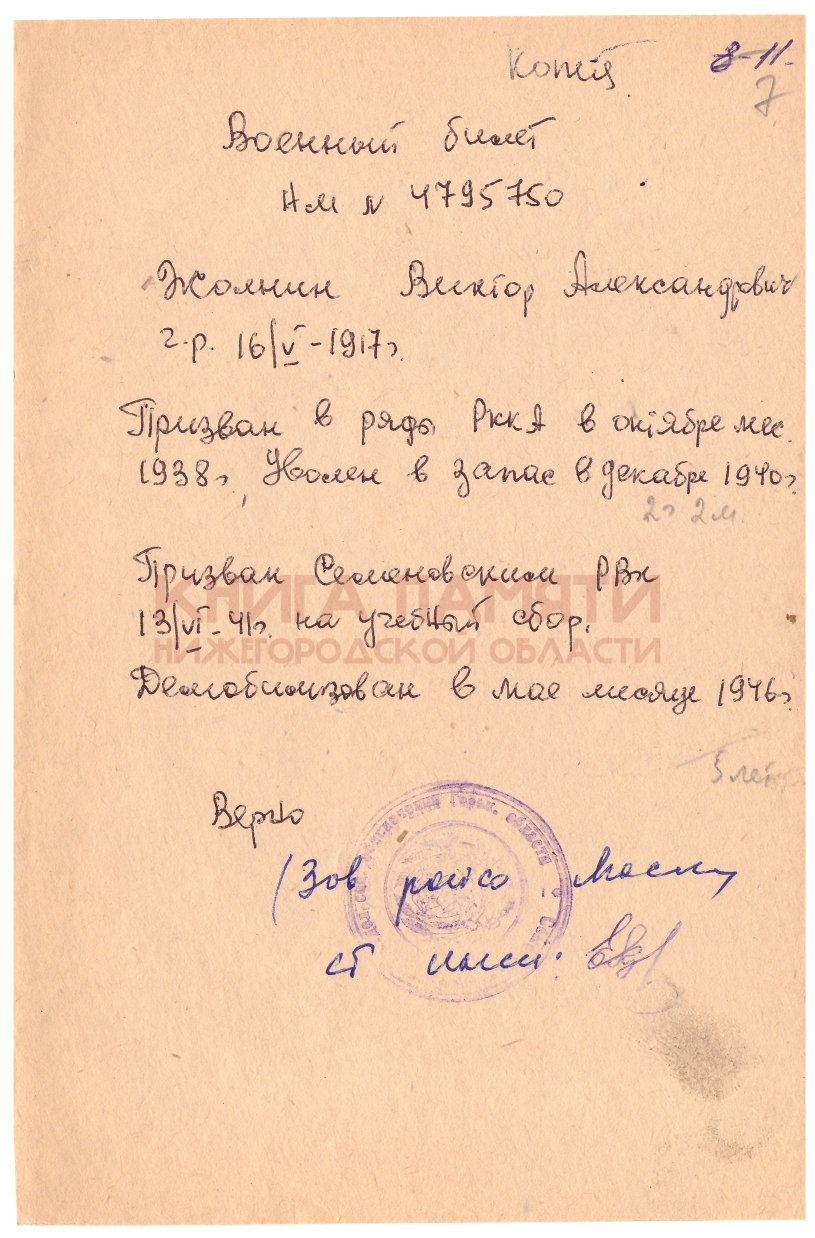 Копия 8-11.
7
Военный билет
НМ N 4795750
Жолнин Виктор Александрович
г.р. 16/V-1917г.
Призван в ряды РККА в октябре мес.
1938г, Уволен в запас в декабре 1940г.
2г 2м.
Призван Семеновским РВК
КНИГА ПАМЯТИ
13/VI-41г. на учебный сбор.
НИЖЕГОРОДСКОЙ ОБЛАСТИ
Демобилизован в мае месяце 1946г.
5 лет
Верно
Горьк. области
/Зав райсо
ст инсп.